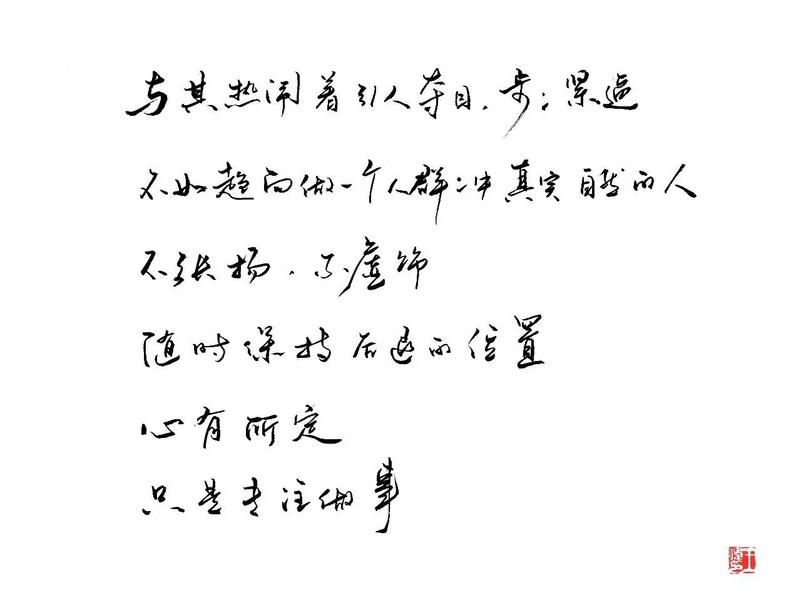 与其热闹着引人夺目，步步紧逼
不如趋向做一个人群之中真实自然的人
不张扬，不虚饰
随时保持后退的位置
心有所定
只是专注做事